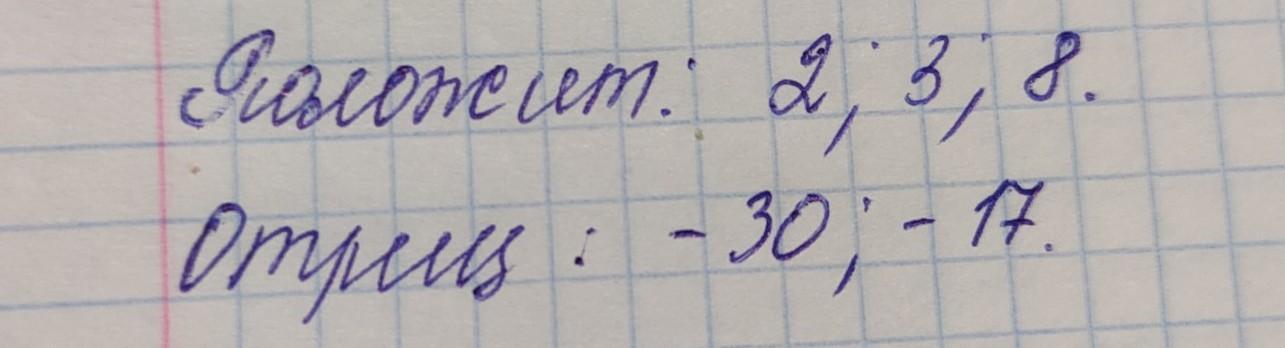 Положит: 2; 3; 8.
Отриц: -30; -17.